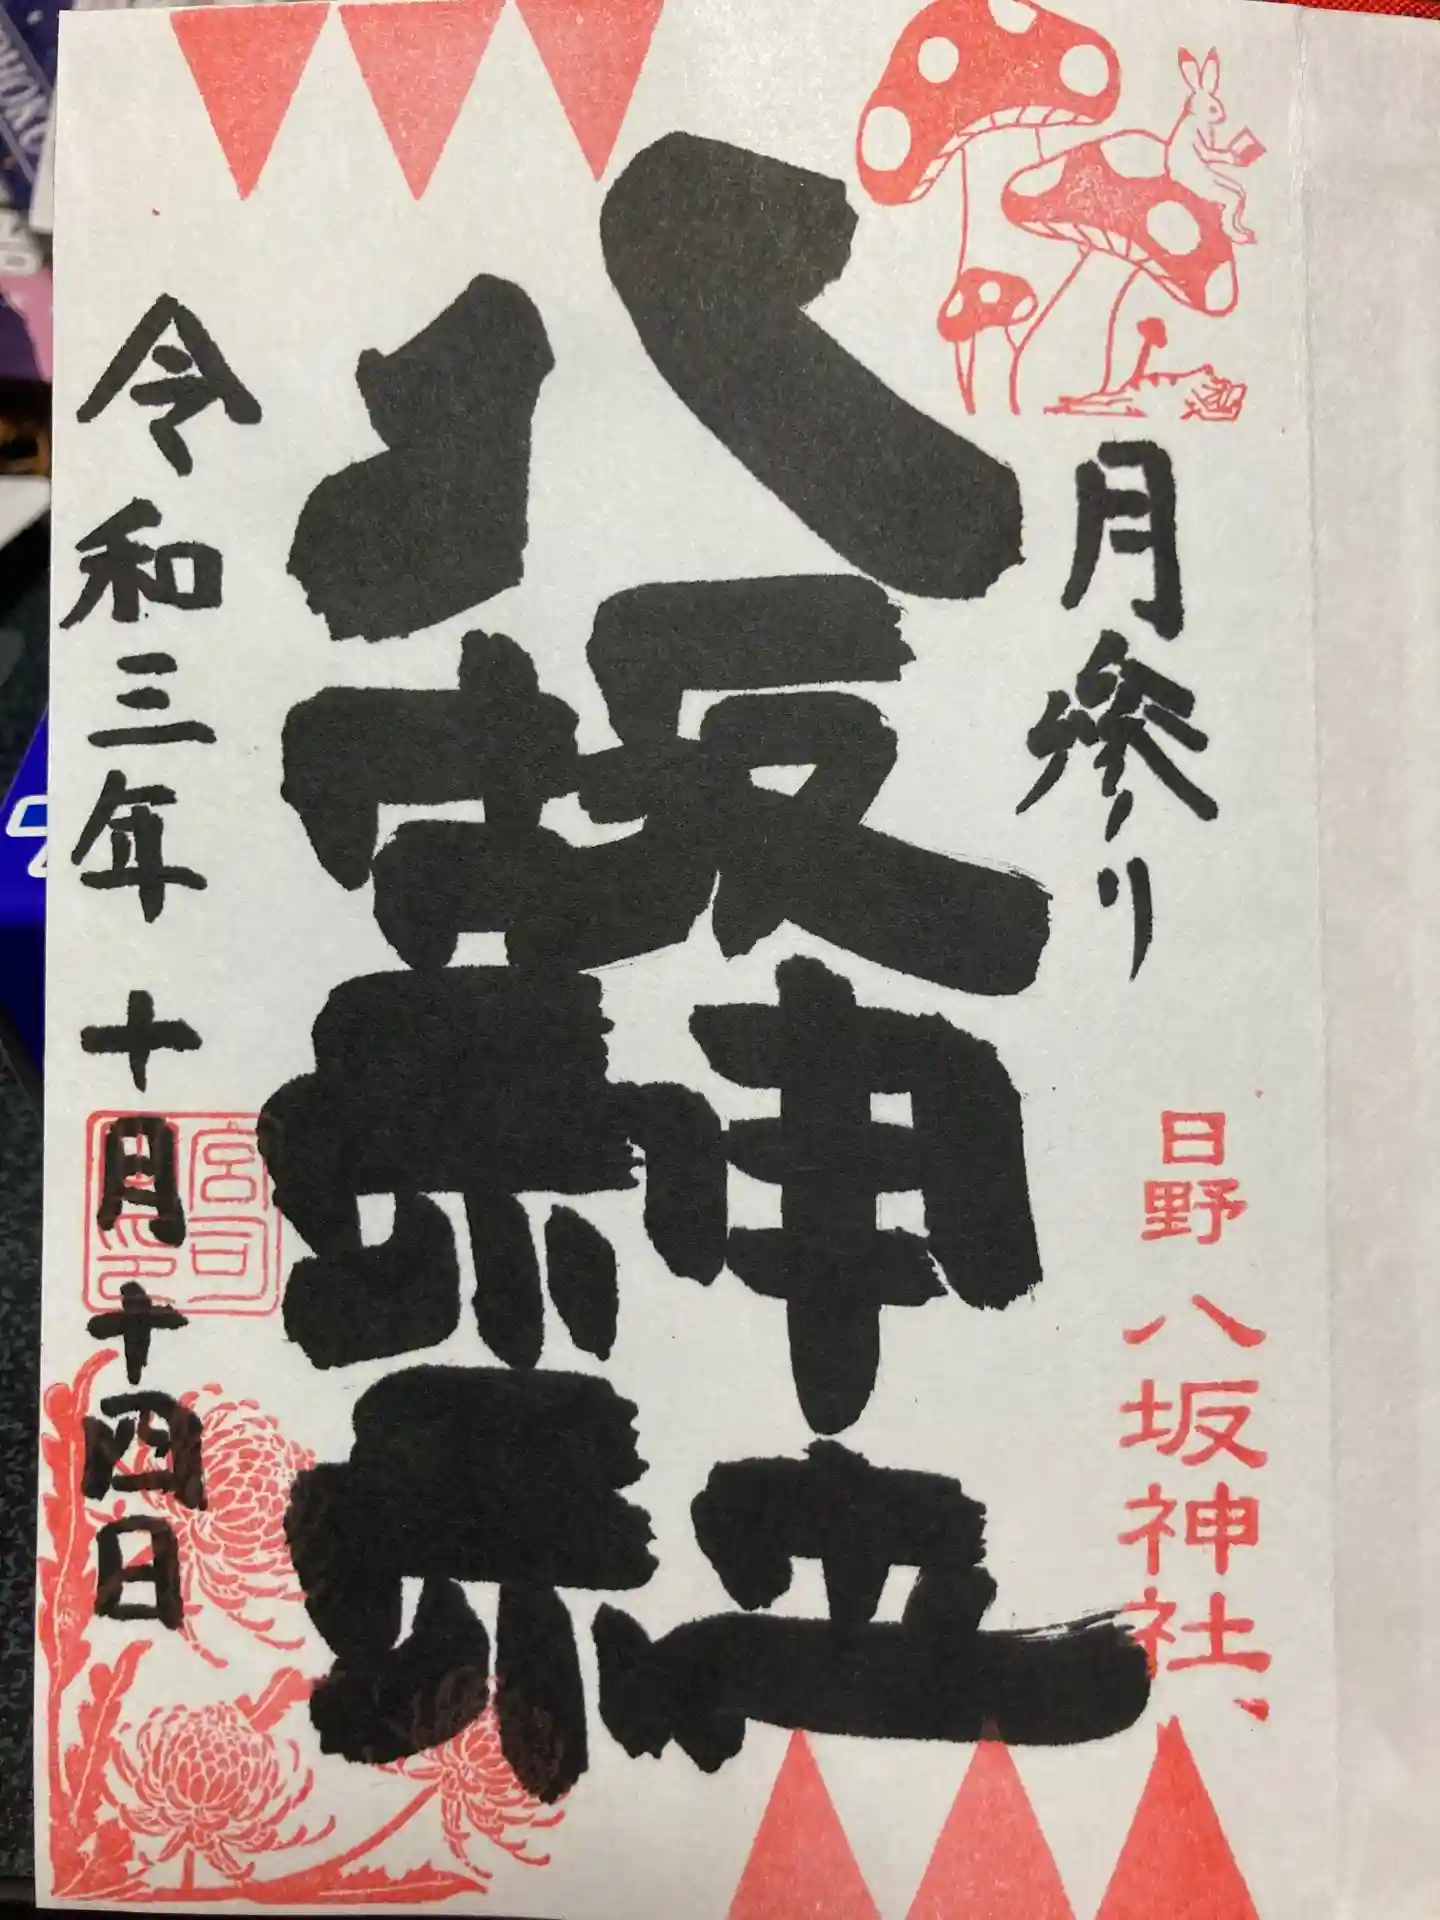 月参り
日野八坂神社
八坂神社
令和三年十月十四日
宮司